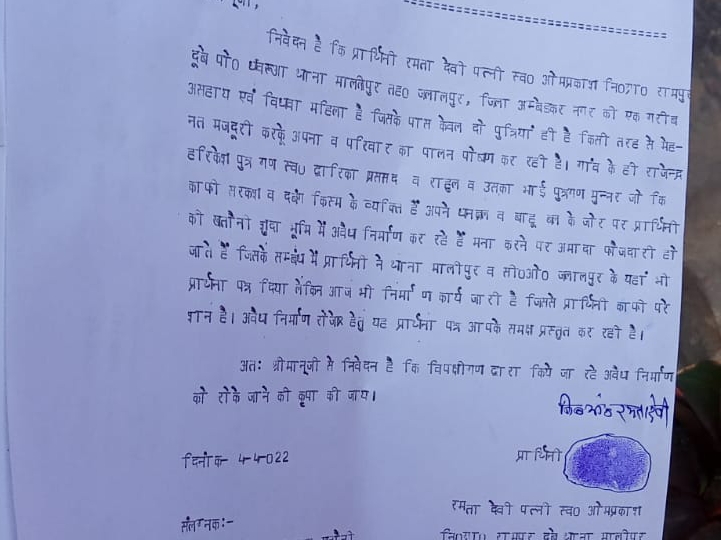 निवेदन है कि प्रार्थिनी रमता देवी पत्नी स्व0 ओमप्रकाश नि0ग्रा0 रामपुर
दूबे पो0 धवरूआ थाना मालीपुर तह0 जलालपुर, जिला अम्बेडकर नगर की एक गरीब
असहाय एवं विधवा महिला है जिसके पास केवल दो पुत्रियां ही है किसी तरह से मेह-
नत मजदूरी करके अपना व परिवार का पालन पोषण कर रही है। गांव के ही राजेन्द्र
हरिकेश पुत्र गण स्व0 द्वारिका प्रसाद व राहुल व उसका भाई पुत्रगण मुन्नर जो कि
काफी सरकश व दबंग किस्म के व्यक्ति हैं अपने धनबल व बाहू बल के जोर पर प्रार्थिनी
की खतौनी शुदा भूमि में अवैध निर्माण कर रहे हैं मना करने पर अमादा फौजदारी हो
जाते हैं जिसके सम्बंध में प्रार्थिनी ने थाना मालीपुर व सी0ओ0 जलालपुर के यहां भी
प्रार्थना पत्र दिया लेकिन आज भी निर्माण कार्य जारी है जिससे प्रार्थिनी काफी परे
शान है। अवैध निर्माण रोके हेतु यह प्रार्थना पत्र आपके समक्ष प्रस्तुत कर रही है।
अतः श्रीमान्‌जी से निवेदन है कि विपक्षीगण द्वारा किये जा रहे अवैध निर्माण
को रोके जाने की कृपा की जाय।
रमता देवी
दिनांक- 4-4-022
प्रार्थिनी
रमता देवी पत्नी स्व0 ओमप्रकाश
संलग्नक:-
नि0ग्रा0 रामपुर दूबे थाना मालीपुर